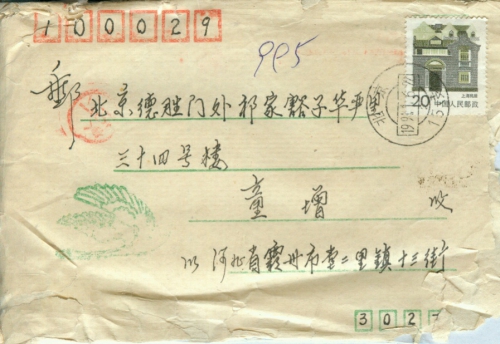 100029
995
20
上海民居
中国人民邮政
邮 北京德胜门外祁家豁子华严里
三十四号楼
童 增 收
河北省霸州市堂二里镇十三街
3027